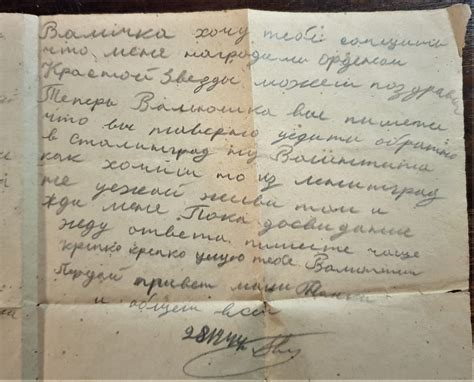 Валичка хочу тебе сопщить
что мене наградили орденом
Красной Звезды можеш поздравить
Теперь Валюшка вы пишети
что вы наверно уедити обратно
в Сталинград ну
как хотити то из ленинград
не уежай живи там и
жди мене Пока досвидание
жду ответа пишете чаще
крепко крепко целую тебе
привет
и общем всем